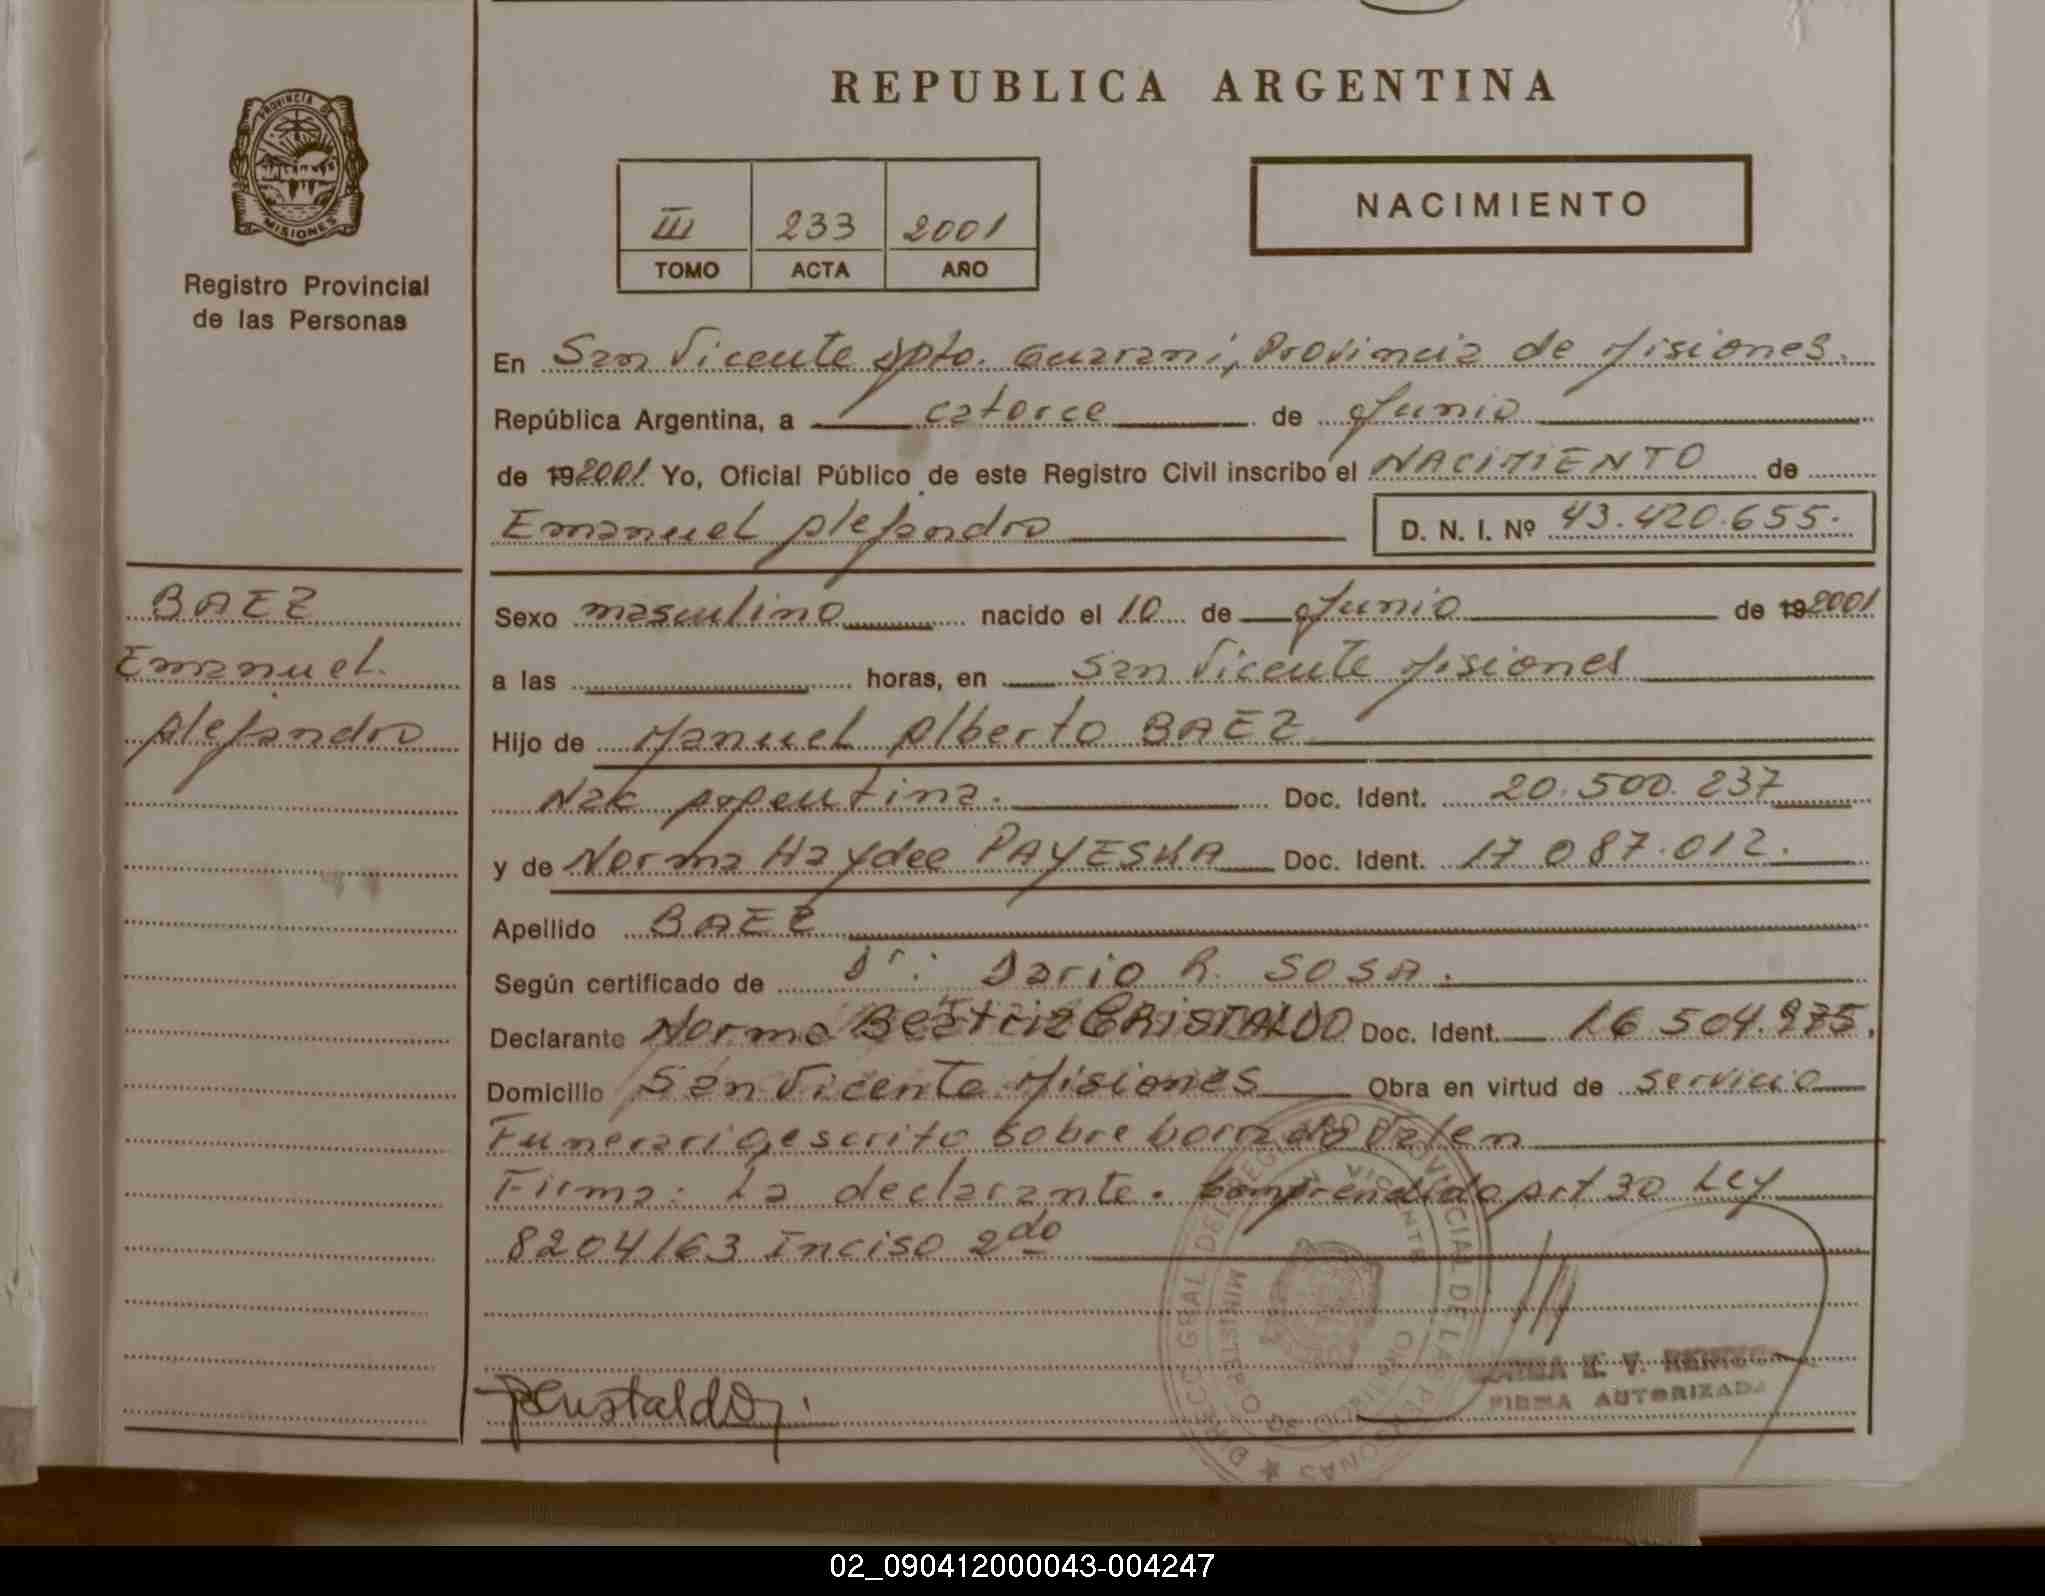 REPUBLICA ARGENTINA
PROVINCIA DE MISIONES
Registro Provincial
de las Personas
III 233 2001
TOMO ACTA AÑO
NACIMIENTO
En San Vicente Dpto. Guarani, Provincia de Misiones.
República Argentina, a catorce de Junio
de 192001 Yo, Oficial Público de este Registro Civil inscribo el NACIMIENTO de
Emanuel Alejandro D. N. I. Nº 43.420.655.
BAEZ
Emanuel
Alejandro
Sexo masculino nacido el 10 de Junio de 192001
a las horas, en San Vicente Misiones
Hijo de Manuel Alberto BAEZ
Nac Argentina. Doc. Ident. 20.500.237
y de Norma Haydee PAYESKA Doc. Ident. 17.087.012.
Apellido BAEZ
Según certificado de Dr: Dario R. SOSA.
Declarante Norma Beatriz CRISTALDO Doc. Ident. 16.504.975.
Domicilio San Vicente Misiones Obra en virtud de servicio
Funerario, escrito sobre borrado Valen
Firma: La declarante. Comprendido Art 30 Ley
8204/63 Inciso 2do
FIRMA AUTORIZADA
02_090412000043-004247